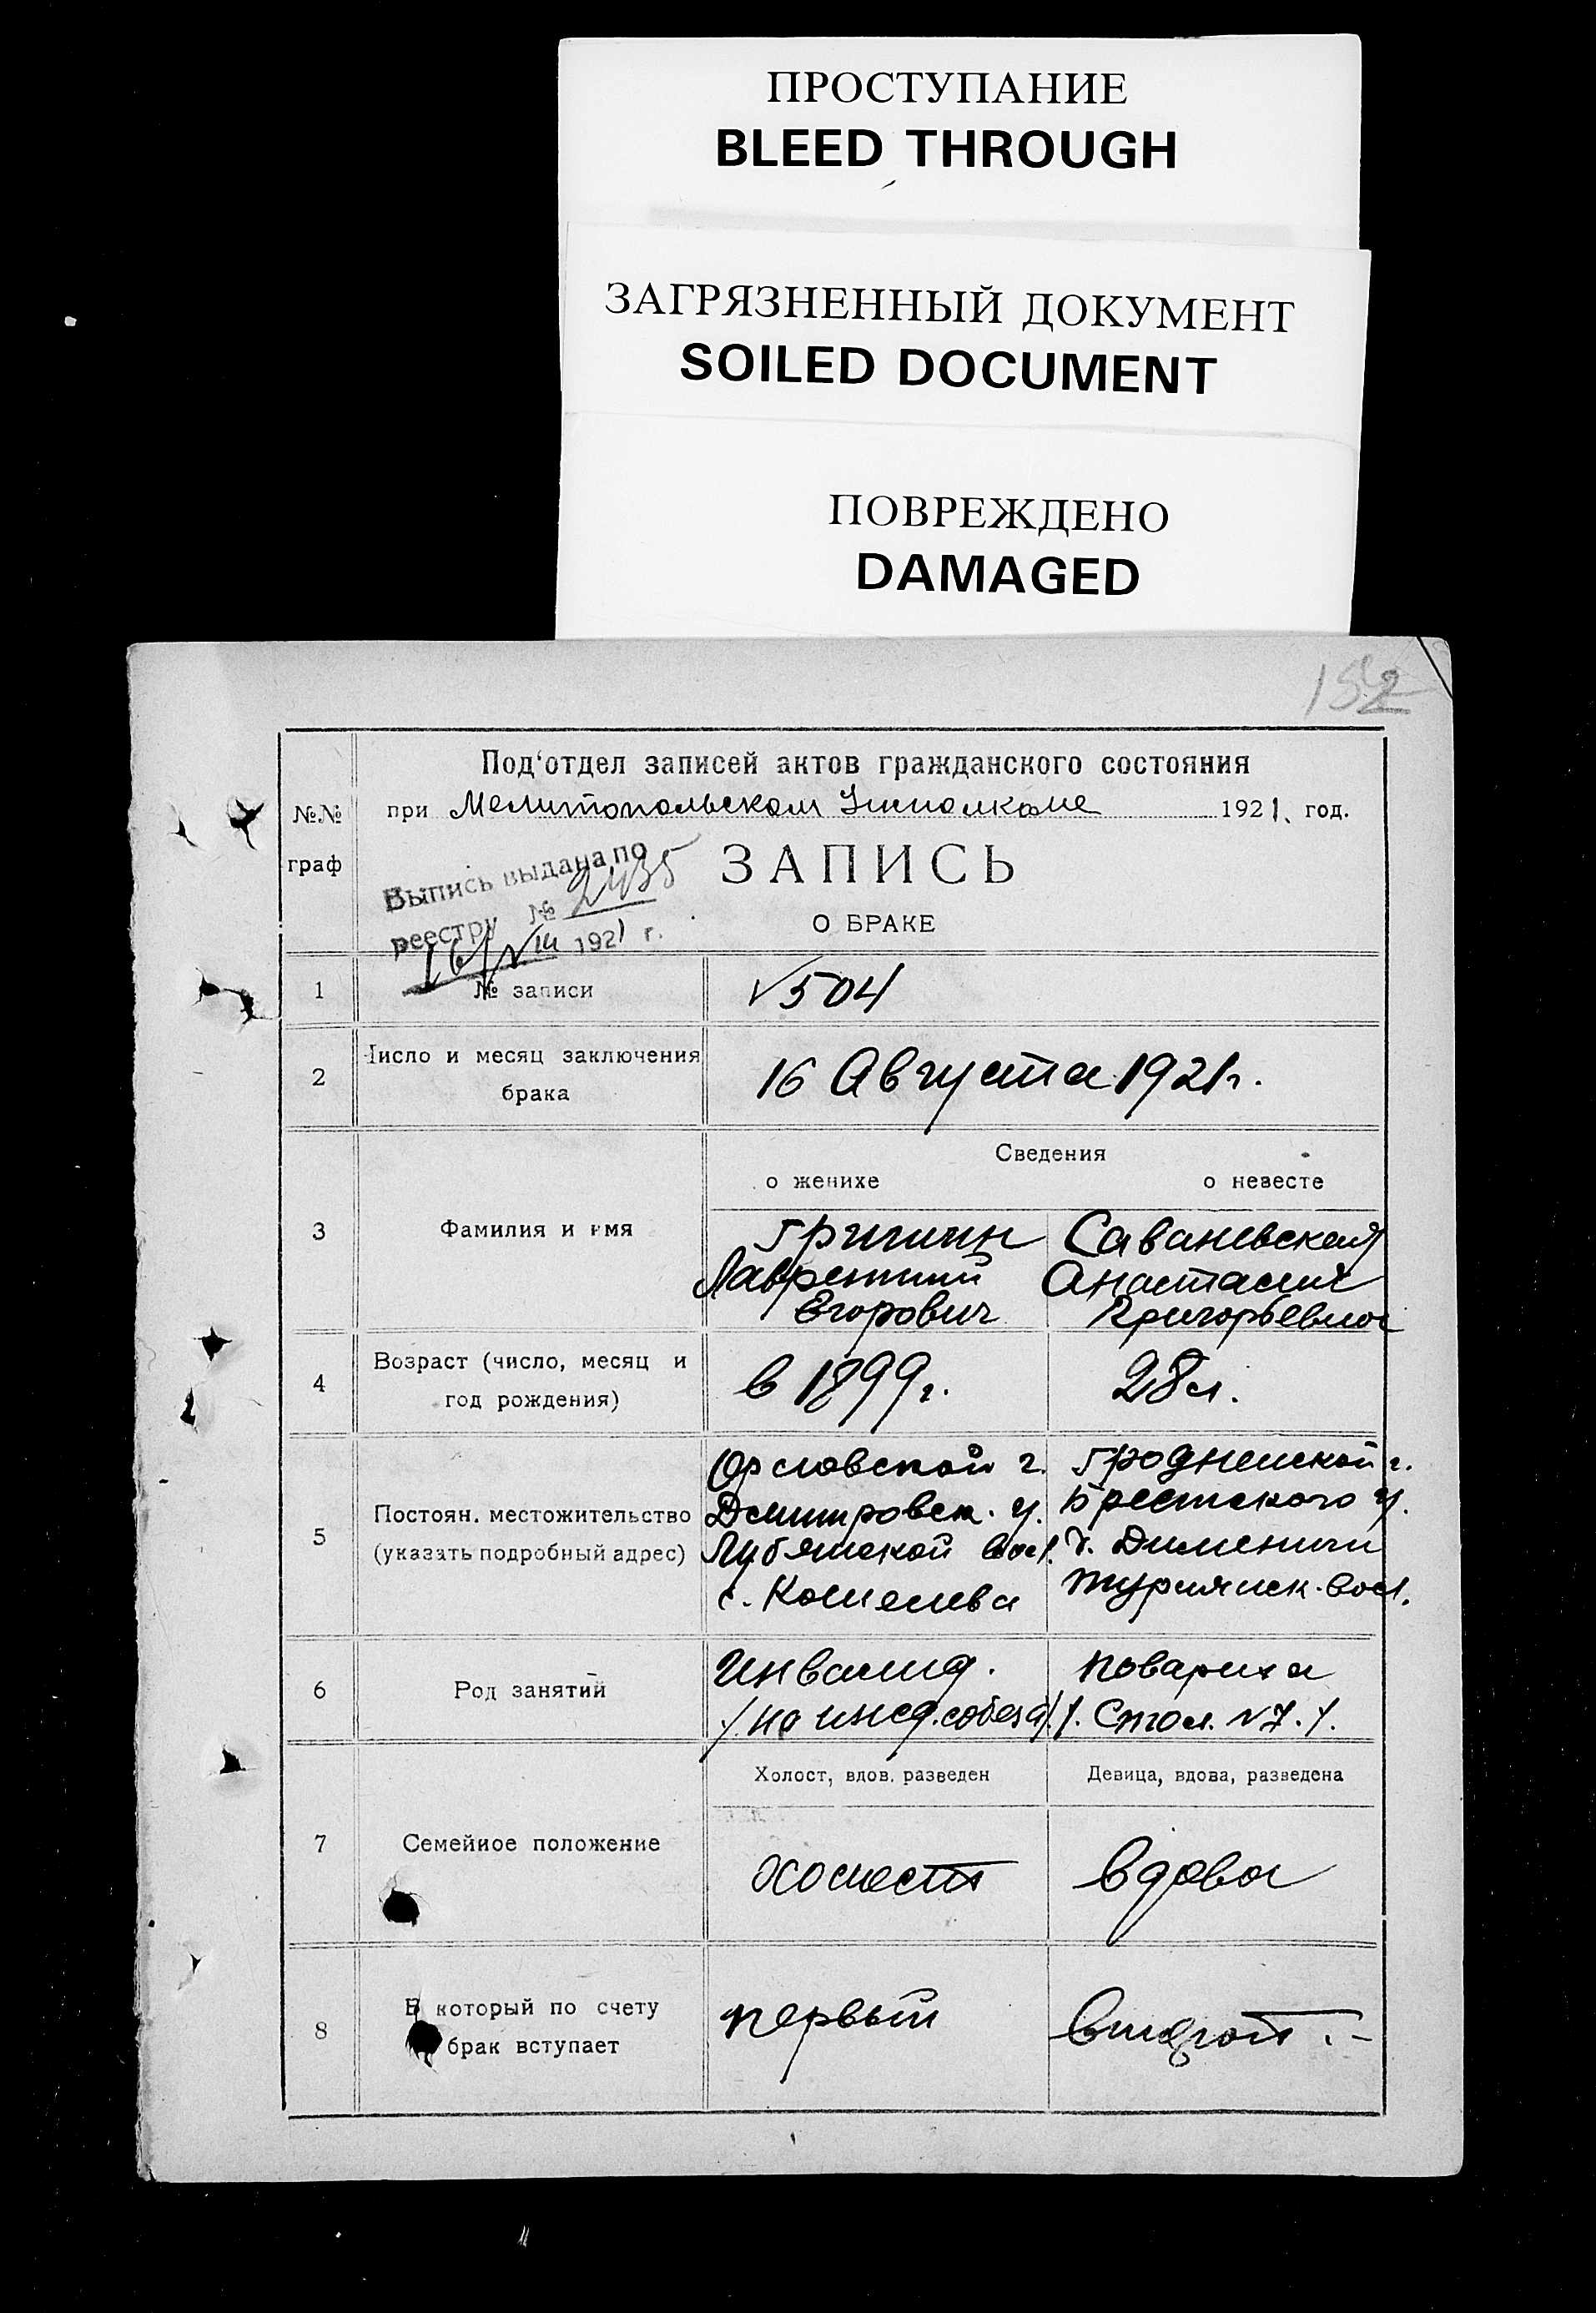 ПРОСТУПАНИЕ
BLEED THROUGH
ЗАГРЯЗНЕННЫЙ ДОКУМЕНТ
SOILED DOCUMENT
ПОВРЕЖДЕНО
DAMAGED
152
Под'отдел записей актов гражданского состояния
№№ граф
при Мелитопольском Исполкоме 1921. год.
Выпись выдана по
реестру № 2435
16/VIII 1921 г.
ЗАПИСЬ
О БРАКЕ
1 № записи √504
2 Число и месяц заключения брака 16 Августа 1921г.
Сведения
о женихе о невесте
3 Фамилия и имя
Гришин Саваневская
Лаврентий Анастасия
Егорович Григорьевна
4 Возраст (число, месяц и год рождения) в 1899г. 28л.
5 Постоян. местожительство (указать подробный адрес)
Орловской г. Гродненской г.
Дмитровск. у. Брестского у.
Лубянской вол. д.
с. вол.
6 Род занятий
Инвалид. повариха
/. на ижд. собеза/. /. Стол. №7./.
Холост, вдов. разведен Девица, вдова, разведена
7 Семейное положение холост вдова
8 В который по счету брак вступает первый второй .-